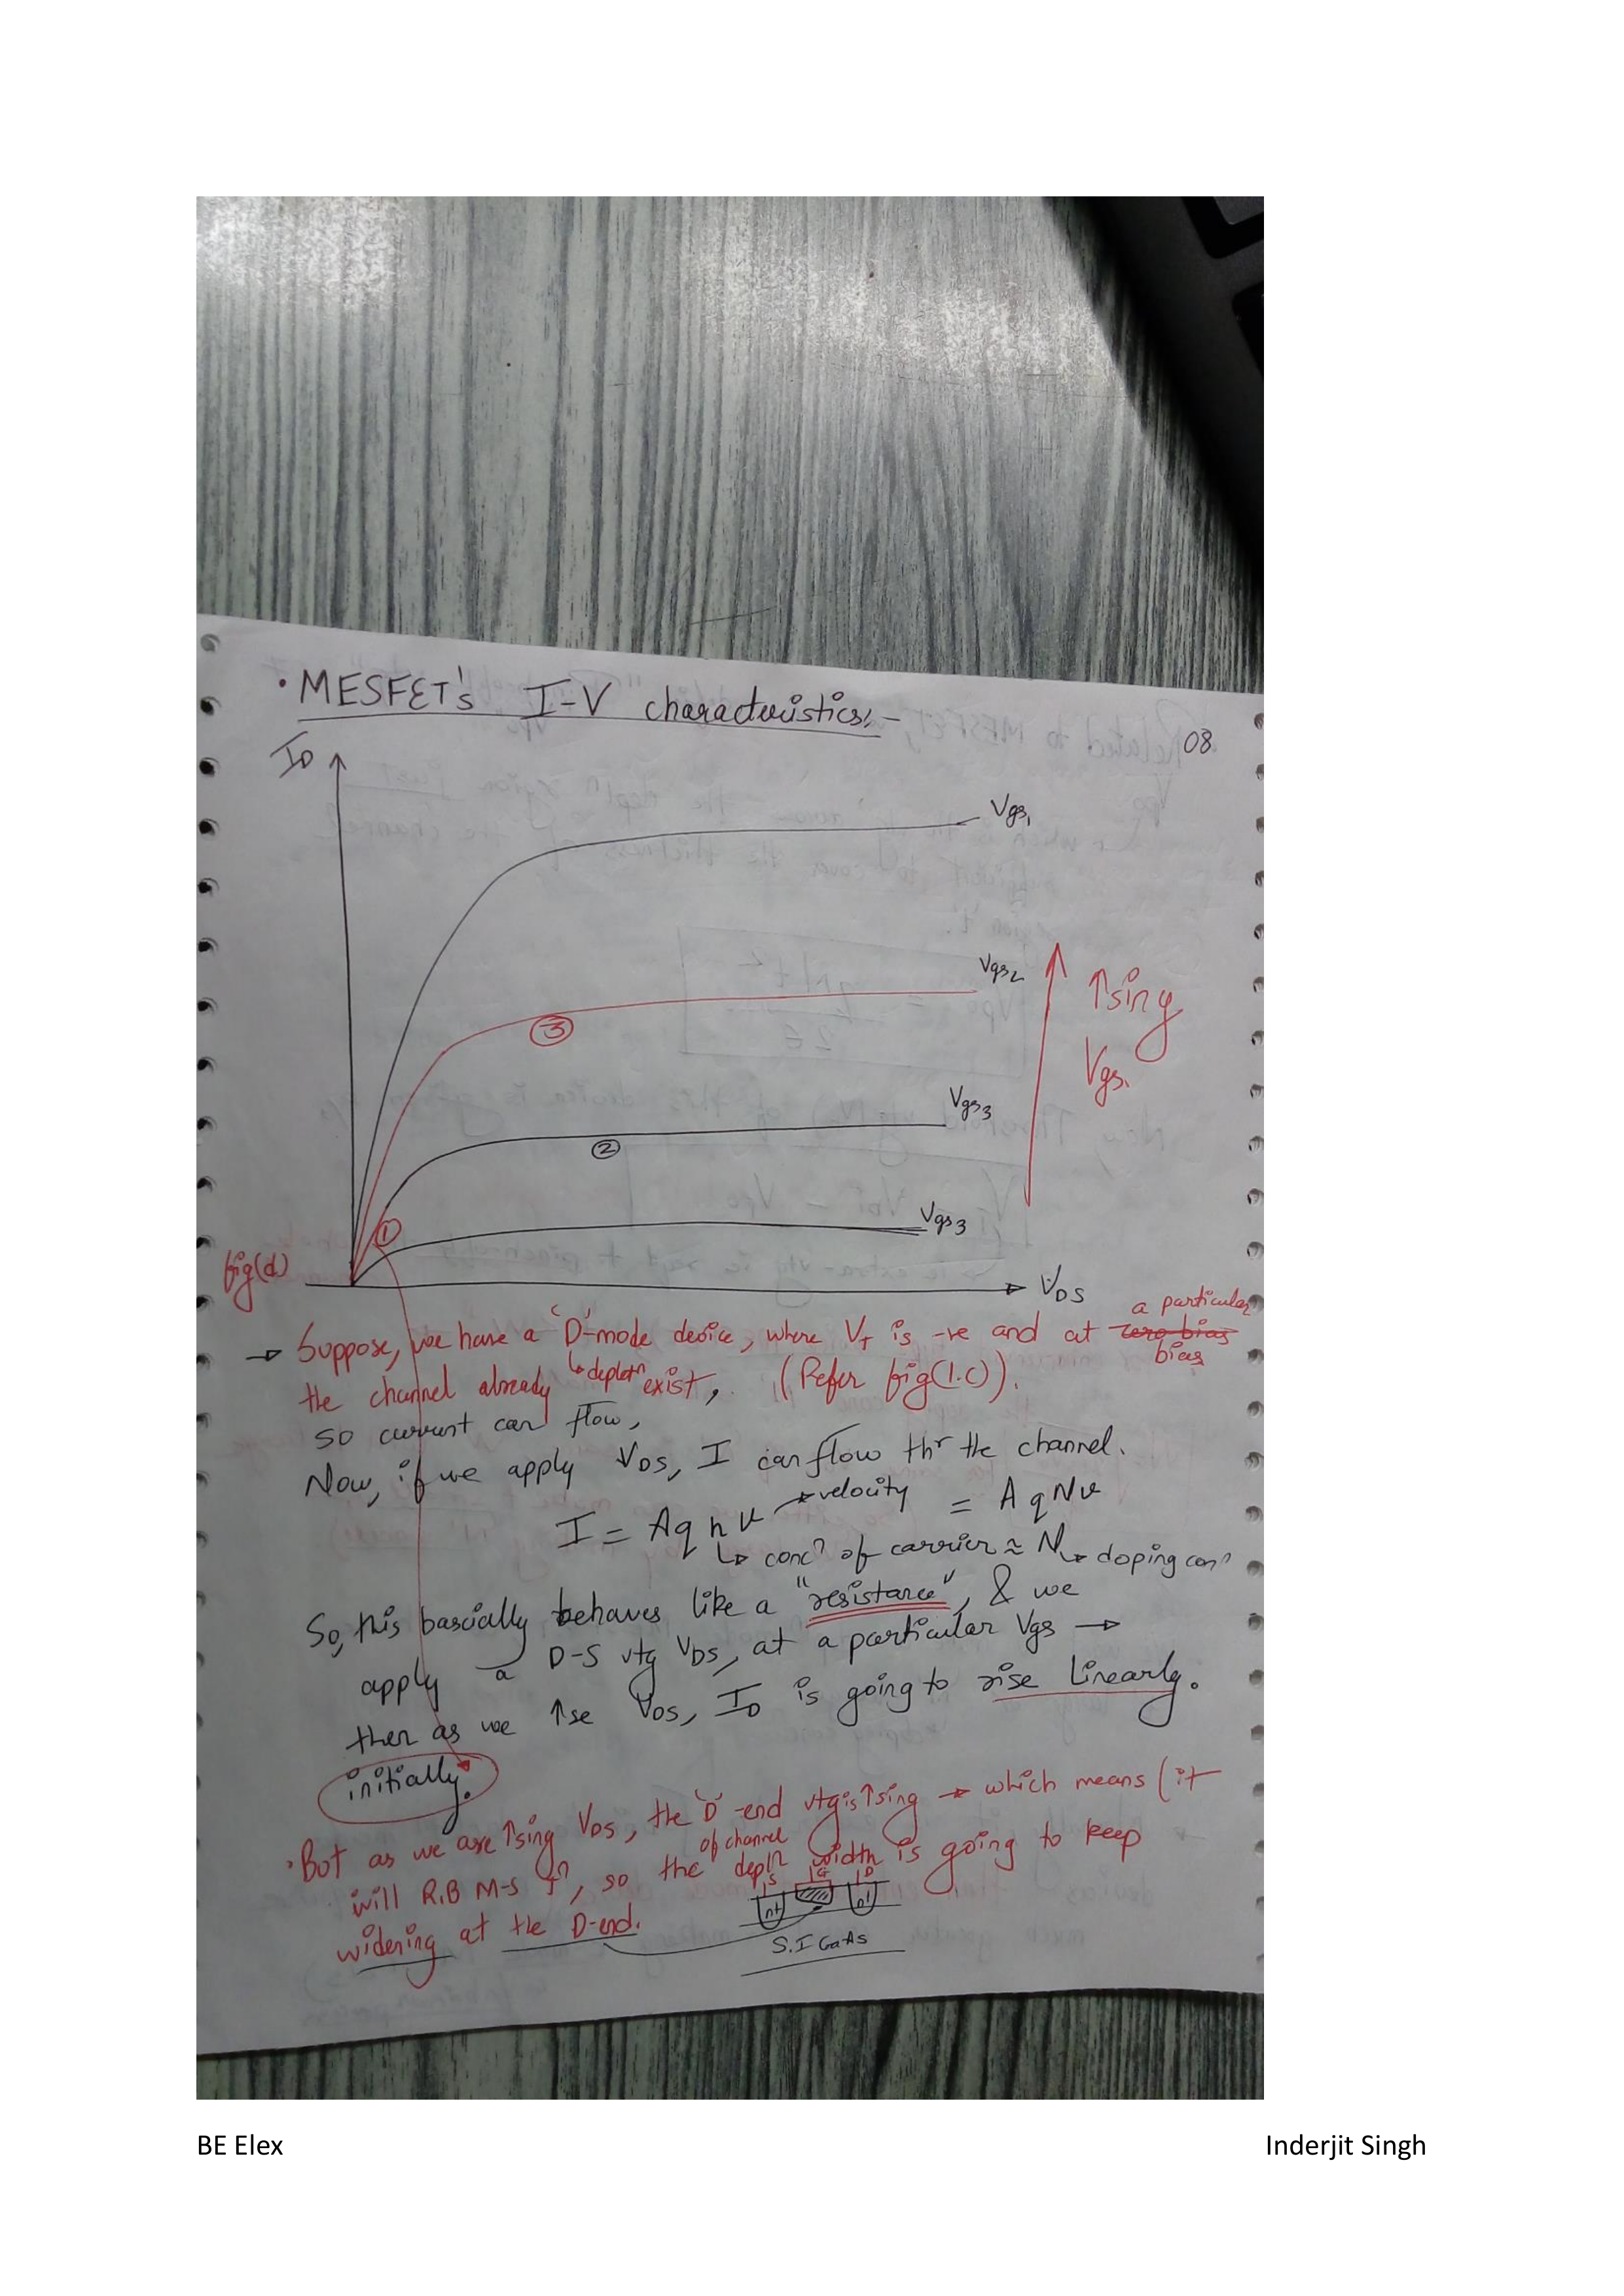 • MESFET's I-V characteristics:-
08
ID
Vgs1
Vgs2
③
↑sing
Vgs.
Vgs3
②
①
Vgs3
fig(d)
VDS
→ Suppose, we have a 'D'-mode device, where VT is -ve and at zero bias a particular bias
↳ depletn
the channel already exist, (Refer fig(1.c)).
so current can flow,
Now, if we apply VDS, I can flow thr the channel.
I = A q n v → velocity = A q N v
↳ concn of carrier ≈ N ↳ doping concn
So, this bascially behaves like a "resistance", & we
apply a D-S vtg VDS, at a particular Vgs →
then as we ↑se VDS, ID is going to rise linearly.
initially.
• But as we are ↑sing VDS, the 'D'-end vtg is ↑sing → which means (it
will R.B M-S Jn, so the depln width of channel is going to keep
widening at the D-end.
S G D
n+ n+
S.I GaAs
BE Elex
Inderjit Singh